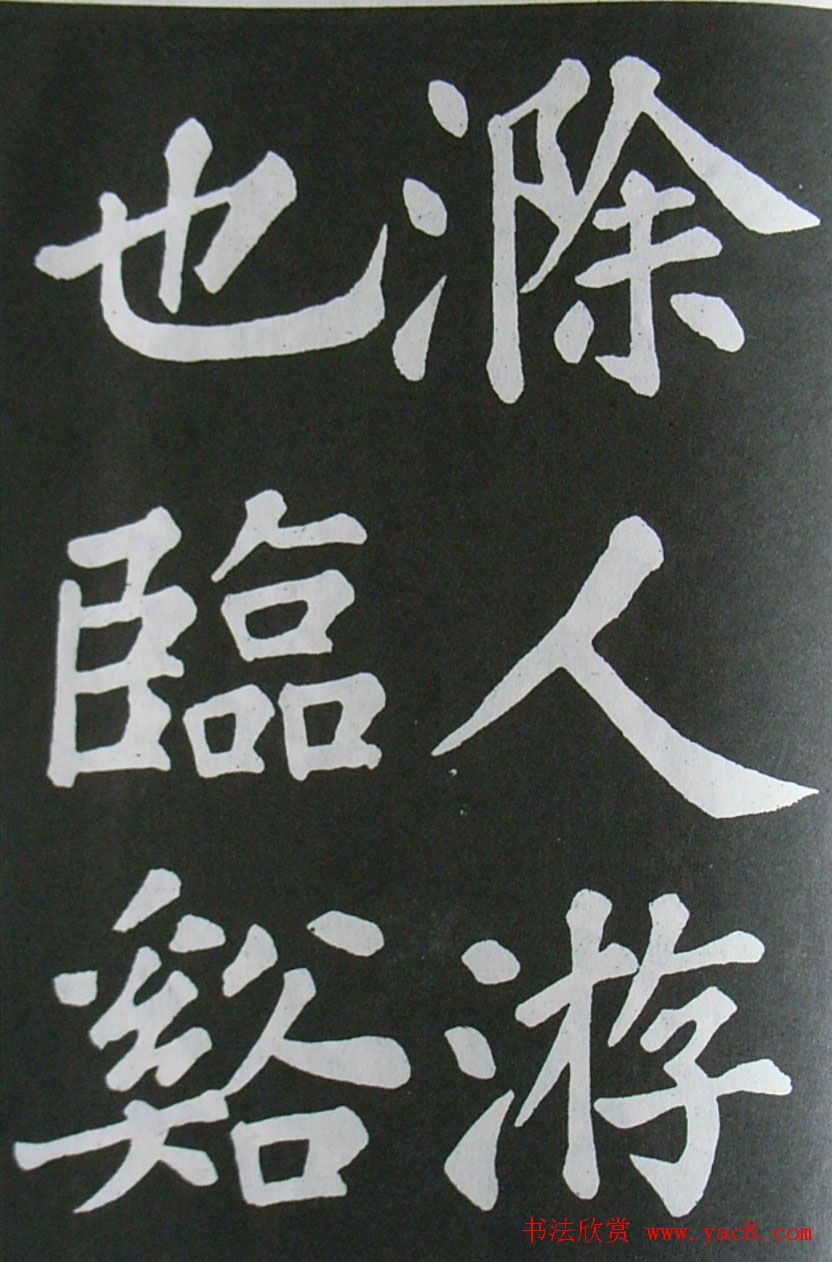 滁人游
也臨谿
书法欣赏 www.yac8.com